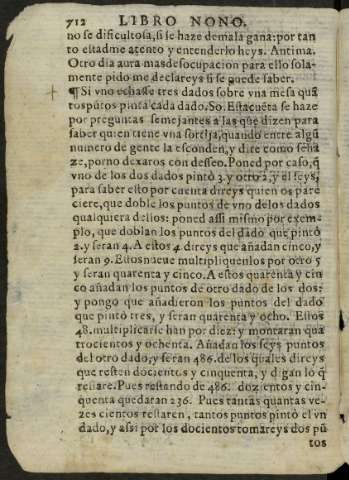 712 LIBRO NONO.
no se dificultosa, si se haze demala gana: por tan
to estadme atento y entenderlo heys. Antima.
Otro dia aura mas desocupacion para ello sola-
mente pido me declareys si se puede saber.
¶ Si vno echasse tres dados sobre vna mesa quã
tos pũtos pintà cada dado. So. Esta cuẽta se haze
por preguntas semejantes a las que dizen para
saber quien tiene vna sortija, quando entre algũ
numero de gente la esconden, y dire como se ha
ze, por no dexaros con desseo. Poned por caso, q̃
vno de los dos dados pintò 3. y otro 2, y el seys,
para saber esto por cuenta direys quien os pare
ciere, que doble los puntos de vno de los dados
qualquiera dellos: poned assi mismo por exem-
plo, que doblan los puntos del dado que pintò
2. y seran 4. A estos 4 direys que añadan cinco, y
seran 9. Estos nueue multipliquenlos por otro 5
y seran quarenta y cinco. A estos quarenta y cin
co añadan los puntos de otro dado de los dos:
y pongo que añadieron los puntos del dado
que pintò tres, y seran quarenta y ocho. Estos
48. multiplicarse han por diez: y montaran qua
trocientos y ochenta. Añadan los seys puntos
del otro dado, y seran 486. de los quales direys
que resten docientos y cinquenta, y digan lo q̃
restare. Pues restando de 486. dozientos y cin-
quenta quedaran 236. Pues tantas quantas ve-
zes cientos restaren, tantos puntos pintò el vn
dado, y assi por los docientos tomareys dos pũ
tos